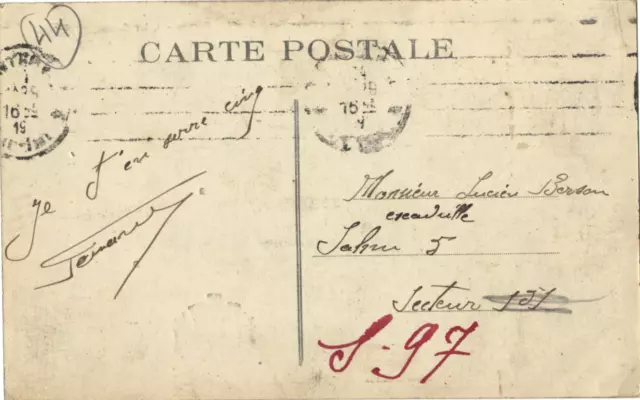 44
CARTE POSTALE
16
19
16
Je t'en serre cinq
Fernand
Monsieur Lucien Berson
escadrille
Salm 5
Secteur 131
S. 97